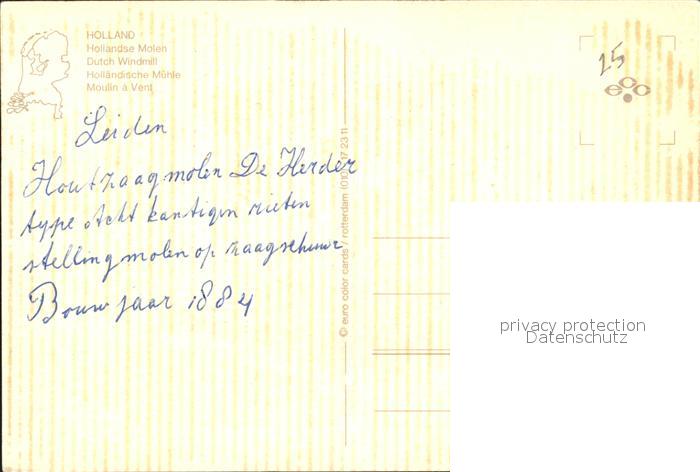 HOLLAND
Hollandse Molen
Dutch Windmill
Holländische Mühle
Moulin à Vent
25
ecc
Leiden
Houtzaagmolen De Herder
type Acht kantigen rieten
stellingmolen op zaagschuur
Bouw jaar 1884
© euro color cards / rotterdam (010) 37 23 11
privacy protection
Datenschutz